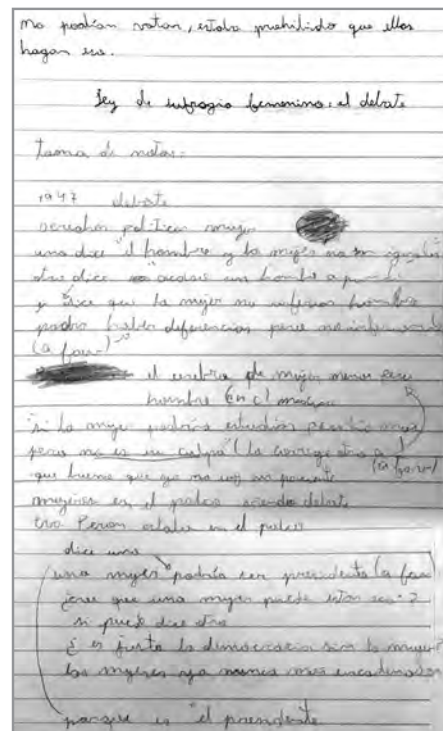 no podían votar, estaba prohibido que ellas
hagan eso.
Ley de sufragio femenino: el debate
Toma de notas:
1947 debate
derechos políticos mujer
uno dice "el hombre y la mujer no son iguales
otro dice un hombre a
y dice que la mujer no inferior hombre
podrá haber diferencias pero no
(a favor)
el cerebro de mujer menos peso
hombre (en el
"si la mujer podría estudiar
pero no es su culpa" (la corrige otro a
(a favor)
que bueno que ya no soy
mujeres en el palco viendo debate
Eva Peron estaba en el palco
dice uno
una mujer podría ser presidente (a favor
¿cree que una mujer puede estar ?
si puede dice otro
¿es justa la democracia sin la mujer
las mujeres ya nunca más encadenadas
porque es "el presidente